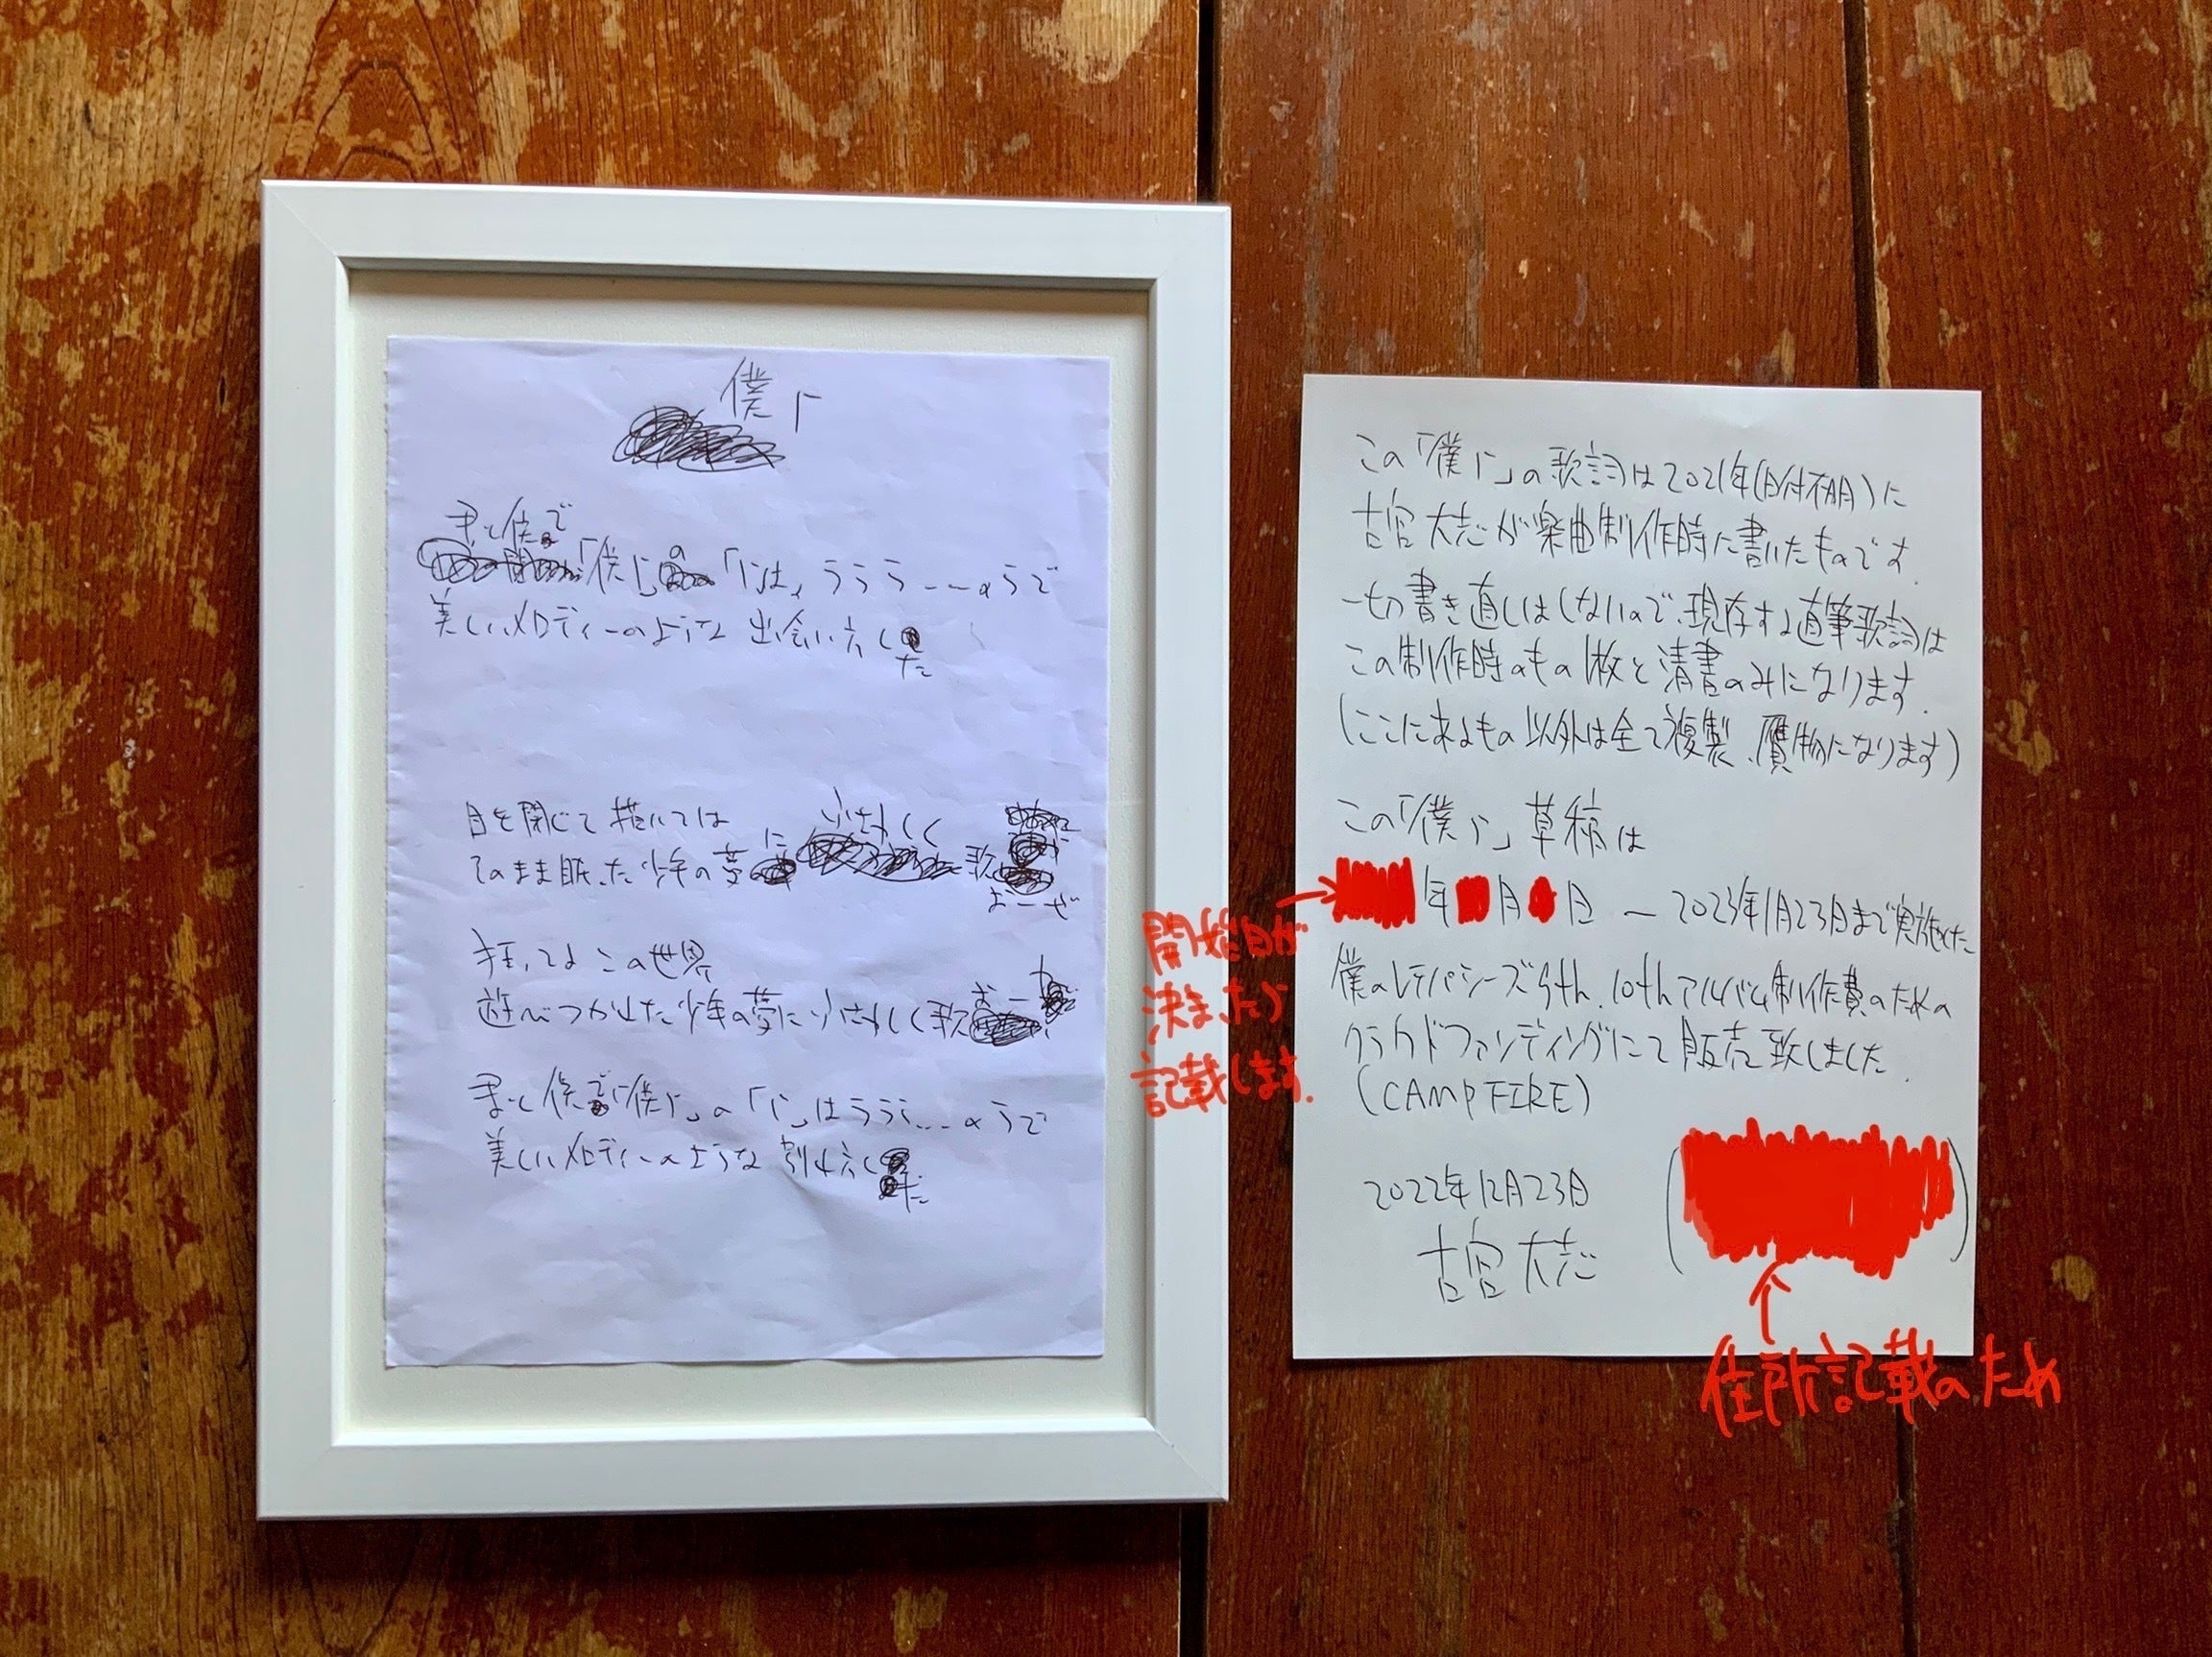 僕ら
君と僕で
「僕ら」の「ら」は、ららら...のらで
美しいメロディーのような出会い
目を閉じて描いては ふさわしく
そのまま眠った少年の夢に 歌
おーぜ
狂ってるこの世界
遊びつかれた少年の夢にふさわしく歌おー
君と僕で「僕ら」の「ら」はららら...のらで
美しいメロディーのような別れ
この「僕ら」の歌詞は2021年(日付不明)に
古宮大志が楽曲制作時に書いたものです.
一切書き直しはしないので、現存する直筆歌詞は
この制作時のもの1枚と清書のみになります.
(ここに来るもの以外は全て複製、贋物になります)
この「僕ら」草稿は
年 月 日 ー 2023年1月23日まで実施した
僕のレテパシーズ9th、10thアルバム制作費のための
クラウドファンディングにて販売致しました.
(CAMPFIRE)
2022年12月23日
古宮大志
開始日が
決まったら
記載します.
住所記載のため